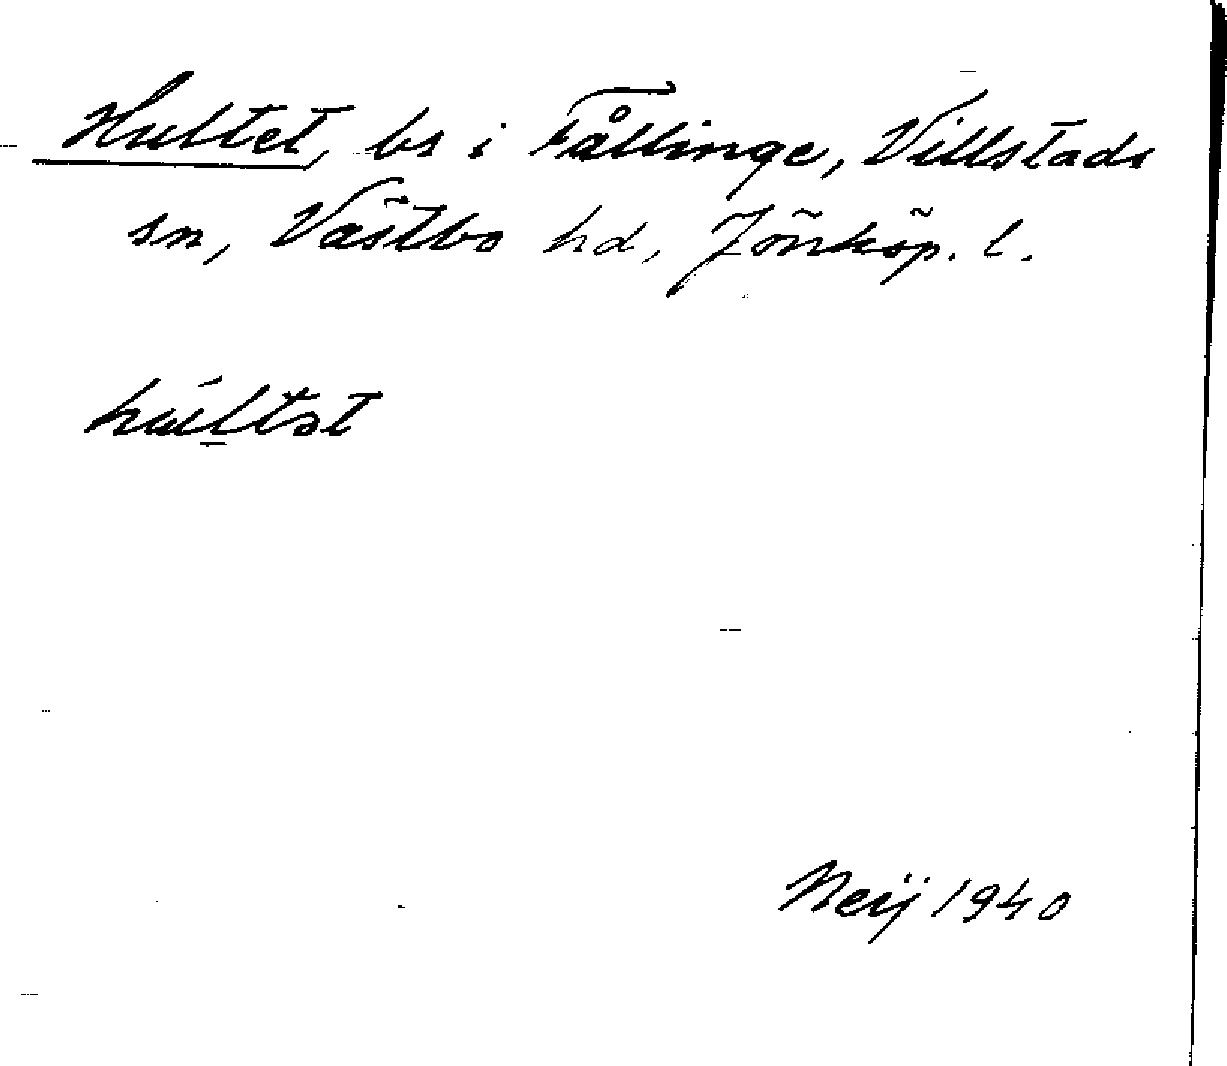 Hultet, bs i Fållinge, Villstads
sn, Västbo hd, Jönköp. l.
Neij 1940